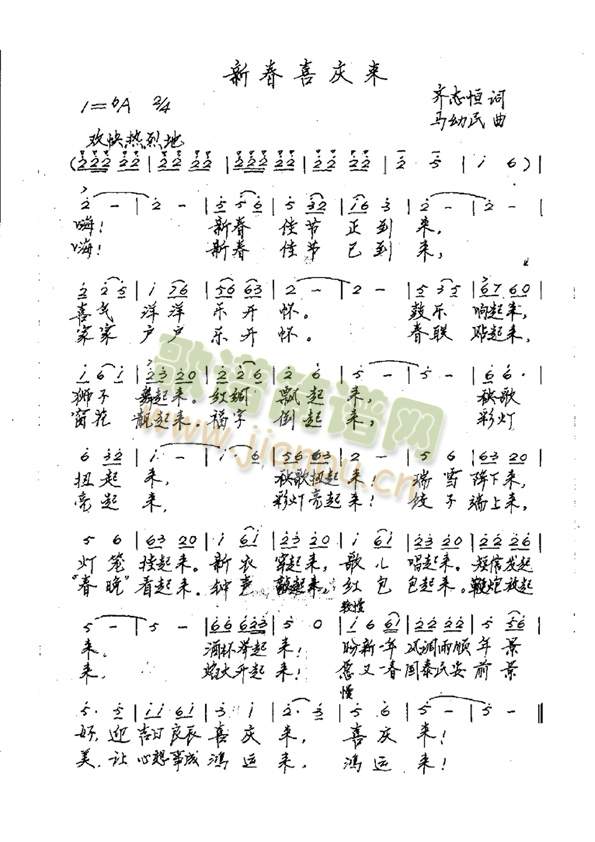 新春喜庆来
1=♭A 2/4
齐志恒 词
马幼民 曲
欢快热烈地
嗨! 新春佳节正到来,
嗨! 新春佳节已到来,
喜气洋洋乐开怀。 鼓乐响起来,
家家户户乐开怀。 春联贴起来,
狮子舞起来。红绸飘起来, 秧歌
窗花靓起来。福字倒起来, 彩灯
扭起来, 秧歌扭起来! 瑞雪降下来,
亮起来, 彩灯亮起来! 饺子端上来,
灯笼挂起来。新衣穿起来, 歌儿唱起来。短信发起
"春晚"看起来。钟声敲起来, 红包包起来。鞭炮放起
较慢
来。 酒杯举起来! 盼新一年风调雨顺年景
来。 焰火升起来! 愿又一春国泰民安前景
慢
好,迎吉日良辰喜庆来, 喜庆来!
美,让心想事成鸿运来, 鸿运来!
歌谱简谱网
www.jianpu.cn